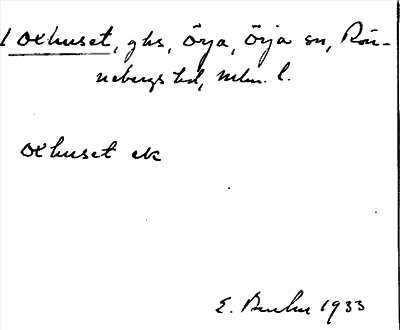 1 Oxhuset, ghs, Örja, Örja sn, Rön-
nebergs hd, mlm. l.
Oxhuset ek
E. 1933